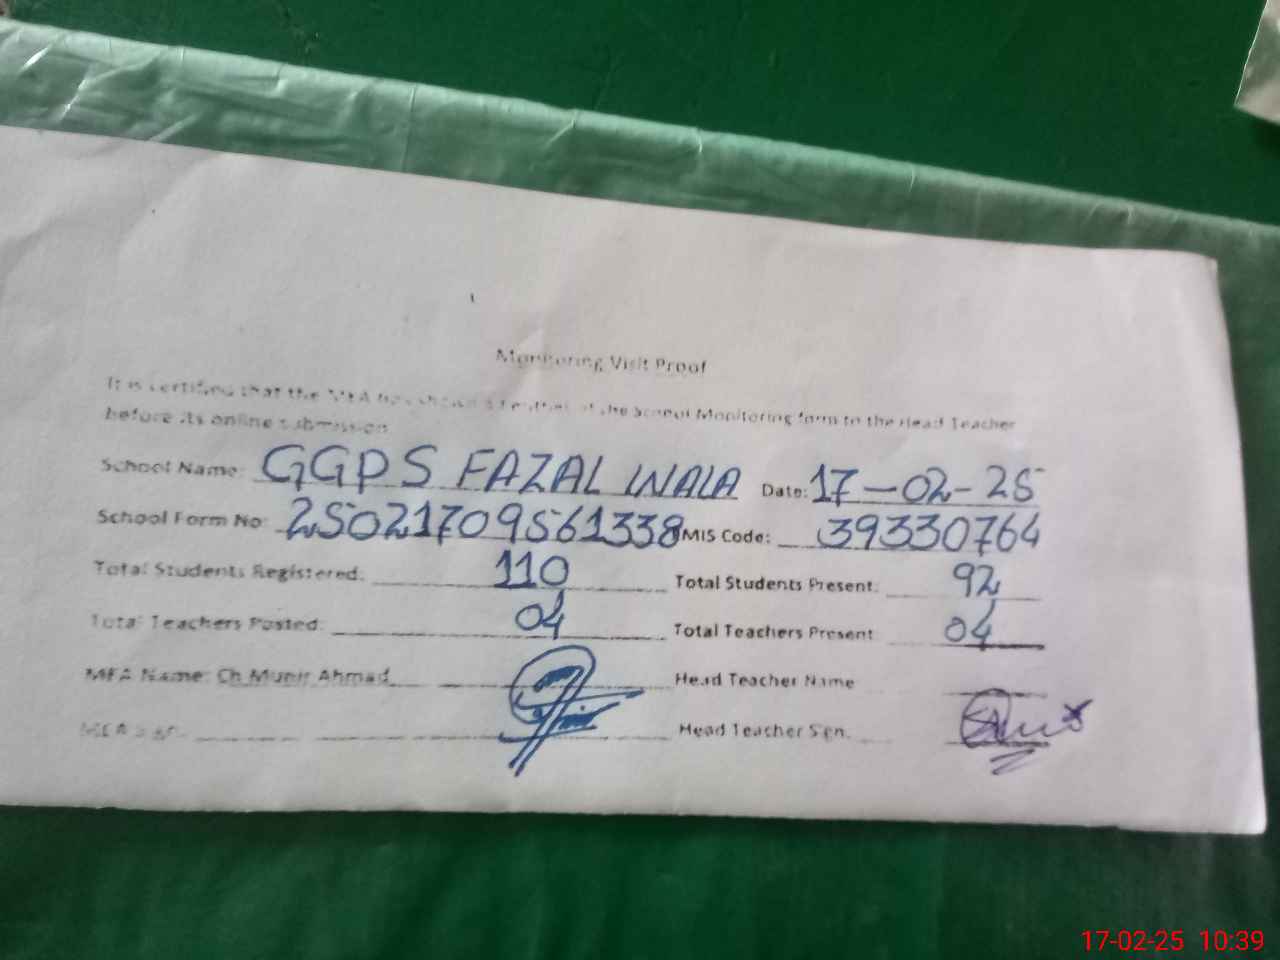 Monitoring Visit Proof
It is certified that the MEA has shown the School Monitoring form to the Head Teacher
before its online submission
School Name: GGPS FAZAL WALA Date: 17-02-25
School Form No: 25021709561338 EMIS Code: 39330764
Total Students Registered: 110 Total Students Present: 92
Total Teachers Posted: 04 Total Teachers Present 04
MEA Name: Ch Munir Ahmad Head Teacher Name
MEA Sign. Head Teacher Sign.
17-02-25 10:39